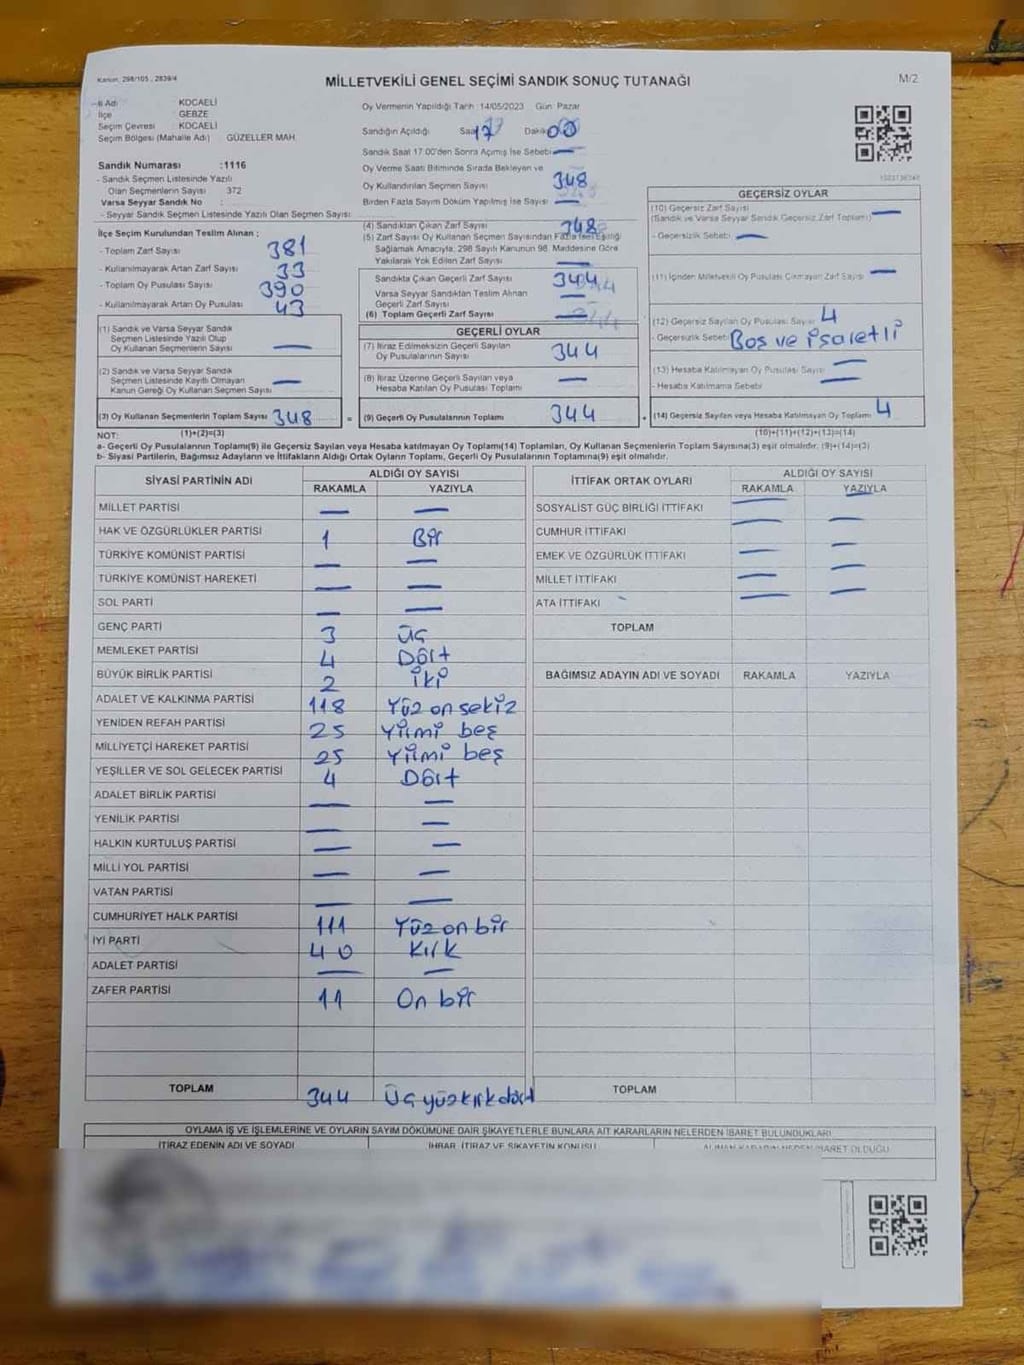 Kanun: 298/105, 2839/4
MİLLETVEKİLİ GENEL SEÇİMİ SANDIK SONUÇ TUTANAĞI
M/2
İli Adı : KOCAELİ
İlçe GEBZE
Seçim Çevresi : KOCAELİ
Seçim Bölgesi (Mahalle Adı) : GÜZELLER MAH.
Sandık Numarası :1116
- Sandık Seçmen Listesinde Yazılı
Olan Seçmenlerin Sayısı : 372
Varsa Seyyar Sandık No :
- Seyyar Sandık Seçmen Listesinde Yazılı Olan Seçmen Sayısı:
İlçe Seçim Kurulundan Teslim Alınan ;
- Toplam Zarf Sayısı : 381
- Kullanılmayarak Artan Zarf Sayısı : 33
- Toplam Oy Pusulası : 390
- Kullanılmayarak Artan Oy Pusulası : 43
(1) Sandık ve Varsa Seyyar Sandık
Seçmen Listesinde Yazılı Olup
Oy Kullanan Seçmenlerin Sayısı : —
(2) Sandık ve Varsa Seyyar Sandık
Seçmen Listesinde Kayıtlı Olmayan
Kanun Gereği Oy Kullanan Seçmen Sayısı : —
(3) Oy Kullanan Seçmenlerin Toplam Sayısı : 348
(1)+(2)=(3)
Oy Vermenin Yapıldığı Tarih :14/05/2023 Gün: Pazar
Sandığın Açıldığı Saat 17 Dakika 00
Sandık Saat 17.00'den Sonra Açılmış İse Sebebi: —
Oy Verme Saati Bitiminde Sırada Bekleyen ve
Oy Kullandırılan Seçmen Sayısı : 348
Birden Fazla Sayım Döküm Yapılmış İse Sayısı : —
(4) Sandıktan Çıkan Zarf Sayısı : 348
(5) Zarf Sayısı Oy Kullanan Seçmen Sayısından Fazla ise, Eşitliği
Sağlamak Amacıyla, 298 Sayılı Kanunun 98. Maddesine Göre
Yakılarak Yok Edilen Zarf Sayısı : —
Sandıkta Çıkan Geçerli Zarf Sayısı : 344
Varsa Seyyar Sandıktan Teslim Alınan
Geçerli Zarf Sayısı : —
(6) Toplam Geçerli Zarf Sayısı : —
GEÇERLİ OYLAR
(7) İtiraz Edilmeksizin Geçerli Sayılan
Oy Pusulalarının Sayısı : 344
(8) İtiraz Üzerine Geçerli Sayılan veya
Hesaba Katılan Oy Pusulası Toplamı : —
= (9) Geçerli Oy Pusulalarının Toplamı : 344
GEÇERSİZ OYLAR
(10) Geçersiz Zarf Sayısı
(Sandık ve Varsa Seyyar Sandık Geçersiz Zarf Toplamı) : —
- Geçersizlik Sebebi : —
(11) İçinden Milletvekili Oy Pusulası Çıkmayan Zarf Sayısı : —
(12) Geçersiz Sayılan Oy Pusulası Sayısı : 4
- Geçersizlik Sebebi : Boş ve işaretli
(13) Hesaba Katılmayan Oy Pusulası Sayısı : —
- Hesaba Katılmama Sebebi : —
+ (14) Geçersiz Sayılan veya Hesaba Katılmayan Oy Toplamı : 4
(10)+(11)+(12)+(13)=(14)
NOT:
a- Geçerli Oy Pusulalarının Toplamı(9) ile Geçersiz Sayılan veya Hesaba katılmayan Oy Toplamı(14) Toplamları, Oy Kullanan Seçmenlerin Toplam Sayısına(3) eşit olmalıdır. (9)+(14)=(3)
b- Siyasi Partilerin, Bağımsız Adayların ve İttifakların Aldığı Oyların Toplamı, Geçerli Oy Pusulalarının Toplamına(9) eşit olmalıdır.
SİYASİ PARTİNİN ADI ALDIĞI OY SAYISI
RAKAMLA YAZIYLA
MİLLET PARTİSİ — —
HAK VE ÖZGÜRLÜKLER PARTİSİ 1 Bir
TÜRKİYE KOMÜNİST PARTİSİ — —
TÜRKİYE KOMÜNİST HAREKETİ — —
SOL PARTİ — —
GENÇ PARTİ 3 Üç
MEMLEKET PARTİSİ 4 Dört
BÜYÜK BİRLİK PARTİSİ 2 iki
ADALET VE KALKINMA PARTİSİ 118 Yüz on sekiz
YENİDEN REFAH PARTİSİ 25 Yirmi beş
MİLLİYETÇİ HAREKET PARTİSİ 25 Yirmi beş
YEŞİLLER VE SOL GELECEK PARTİSİ 4 Dört
ADALET BİRLİK PARTİSİ — —
YENİLİK PARTİSİ — —
HALKIN KURTULUŞ PARTİSİ — —
MİLLİ YOL PARTİSİ — —
VATAN PARTİSİ — —
CUMHURİYET HALK PARTİSİ 111 Yüz on bir
İYİ PARTİ 40 Kırk
ADALET PARTİSİ — —
ZAFER PARTİSİ 11 On bir
TOPLAM 344 Üç yüz kırk dört
İTTİFAK ORTAK OYLARI ALDIĞI OY SAYISI
RAKAMLA YAZIYLA
SOSYALİST GÜÇ BİRLİĞİ İTTİFAKI — —
CUMHUR İTTİFAKI — —
EMEK VE ÖZGÜRLÜK İTTİFAKI — —
MİLLET İTTİFAKI — —
ATA İTTİFAKI — —
TOPLAM
BAĞIMSIZ ADAYIN ADI VE SOYADI RAKAMLA YAZIYLA
TOPLAM
OYLAMA İŞ VE İŞLEMLERİNE VE OYLARIN SAYIM DÖKÜMÜNE DAİR ŞİKAYETLERLE BUNLARA AİT KARARLARIN NELERDEN İBARET BULUNDUKLARI
İTİRAZ EDENİN ADI VE SOYADI İHBAR, İTİRAZ VE ŞİKAYETİN KONUSU ALINAN KARARIN NEDEN İBARET OLDUĞU